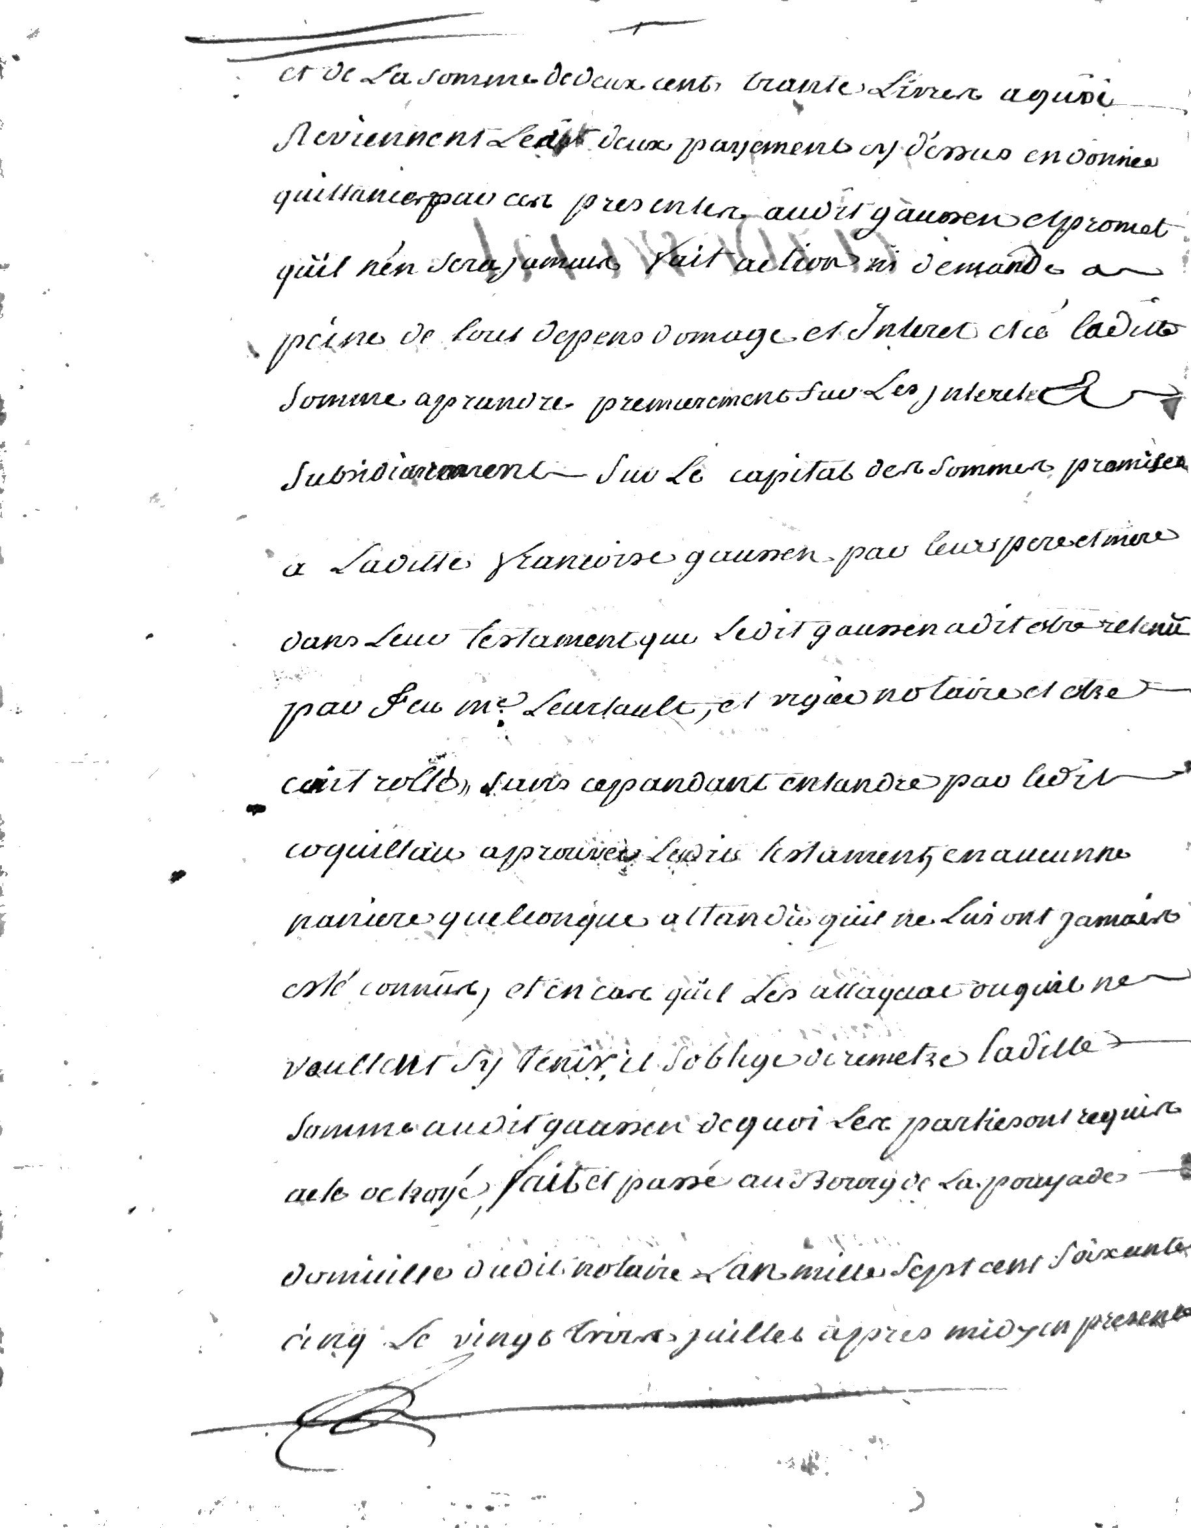 et de La somme de deux cent trante Livres a quoi
Reviennent Lesdit deux payement cy dessus en donne
quittance par ces presentes audit gaussen et promet
qu'il n'en sera jamais fait action ni demande a
peine de tous depens domage et Interet et a ladite
somme aprandre premierement sur Les jnterets &
subsidiairement sur Le capital des sommes promises
a Laditte francoise gaussen par leurs pere et mere
dans Leur testament que Ledit gaussen a dit estre retenü
par feu me et vigée notaire et estre
controllé, sans cepandant entandre par ledit
coquillau aprouver Ledit testament, en aucunne
maniere quelconque attandu qu'il ne Lui ont jamais
esté connüe, et en cas qu'il Les attaquat ou quil ne
voullent s'y tenir, il s'oblige de remetre laditte
somme audit gaussen de quoi Les parties ont requis
acte octroyé, fait et passé au Bourg de La pouyade
domicille dudit notaire L'an mille sept cent soixante
cinq Le vingt trois juillet apres midy en presence